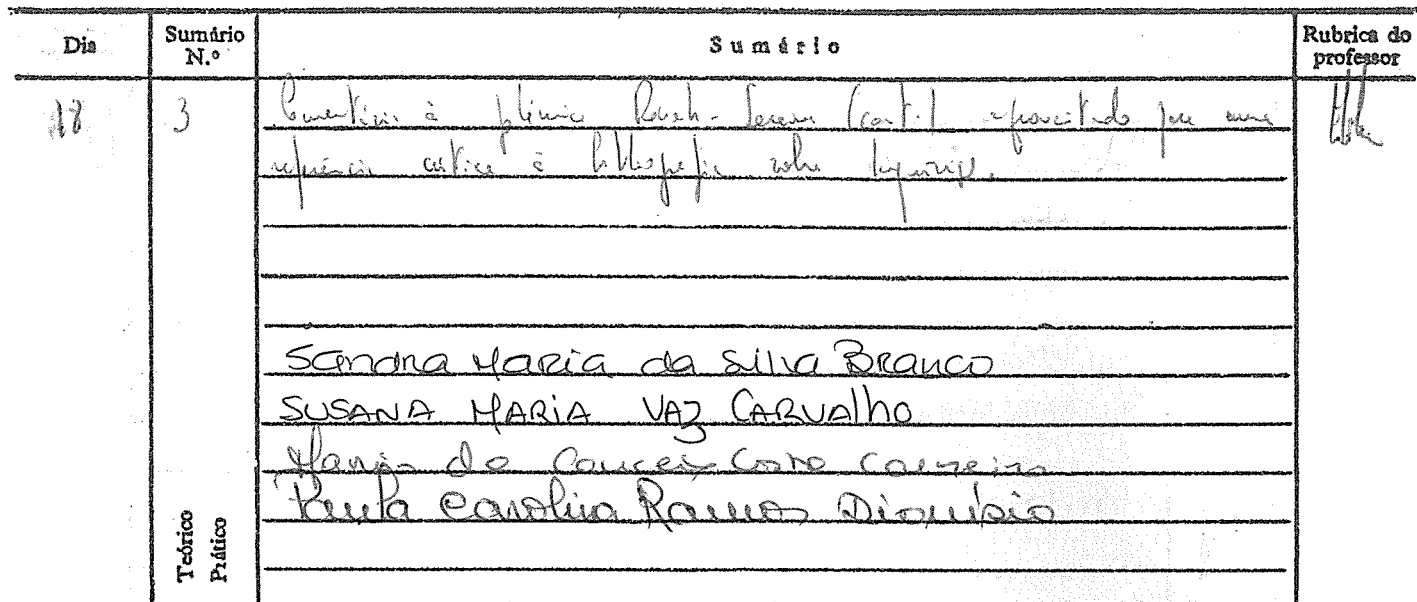 Dia Sumário N.º Sumário Rubrica do professor
18 3 Comentário à polémica (cont.) por uma
referência crítica à bibliografia sobre
Sandra Maria da Silva Branco
SUSANA MARIA VAZ CARVALHO
Maria da Conceição Carneiro
Paula Carolina Ramos Dionísio
Teórico
Prático